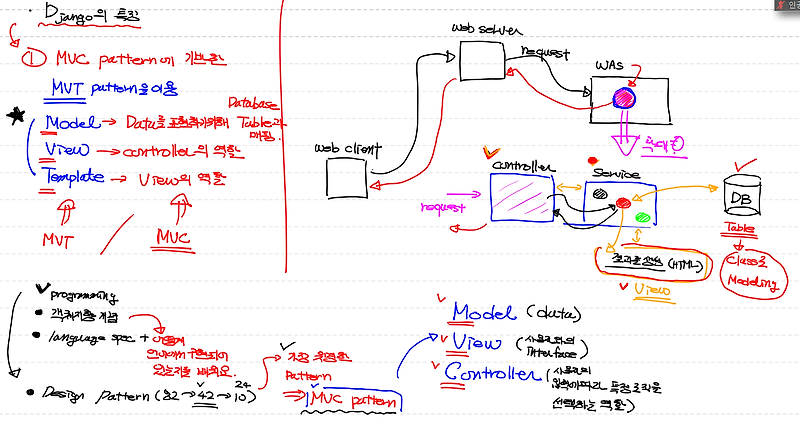 · Django의 특징
① MVC pattern에 기반한
MVT pattern을 이용
Database
★ Model → Data를 표현하기위해 Table과
매핑.
View → controller의 역할
Template → View의 역할
MVT / MVC
web server
request
WAS
web client
확대
controller
Service
request
DB
Table
Class로
Modeling
결과를 생성 (HTML)
View
programming
• 객체지향 개념
• language spec + 어떻게
언어에서 구현되어
있는지를 배워요.
• Design pattern (32 → 42 → 10)
24
가장 유명한
Pattern
⇒ MVC pattern
Model (data)
View (사용자와의
Interface)
Controller (사용자의
입력에따라 특정로직을
선택하는 역할)